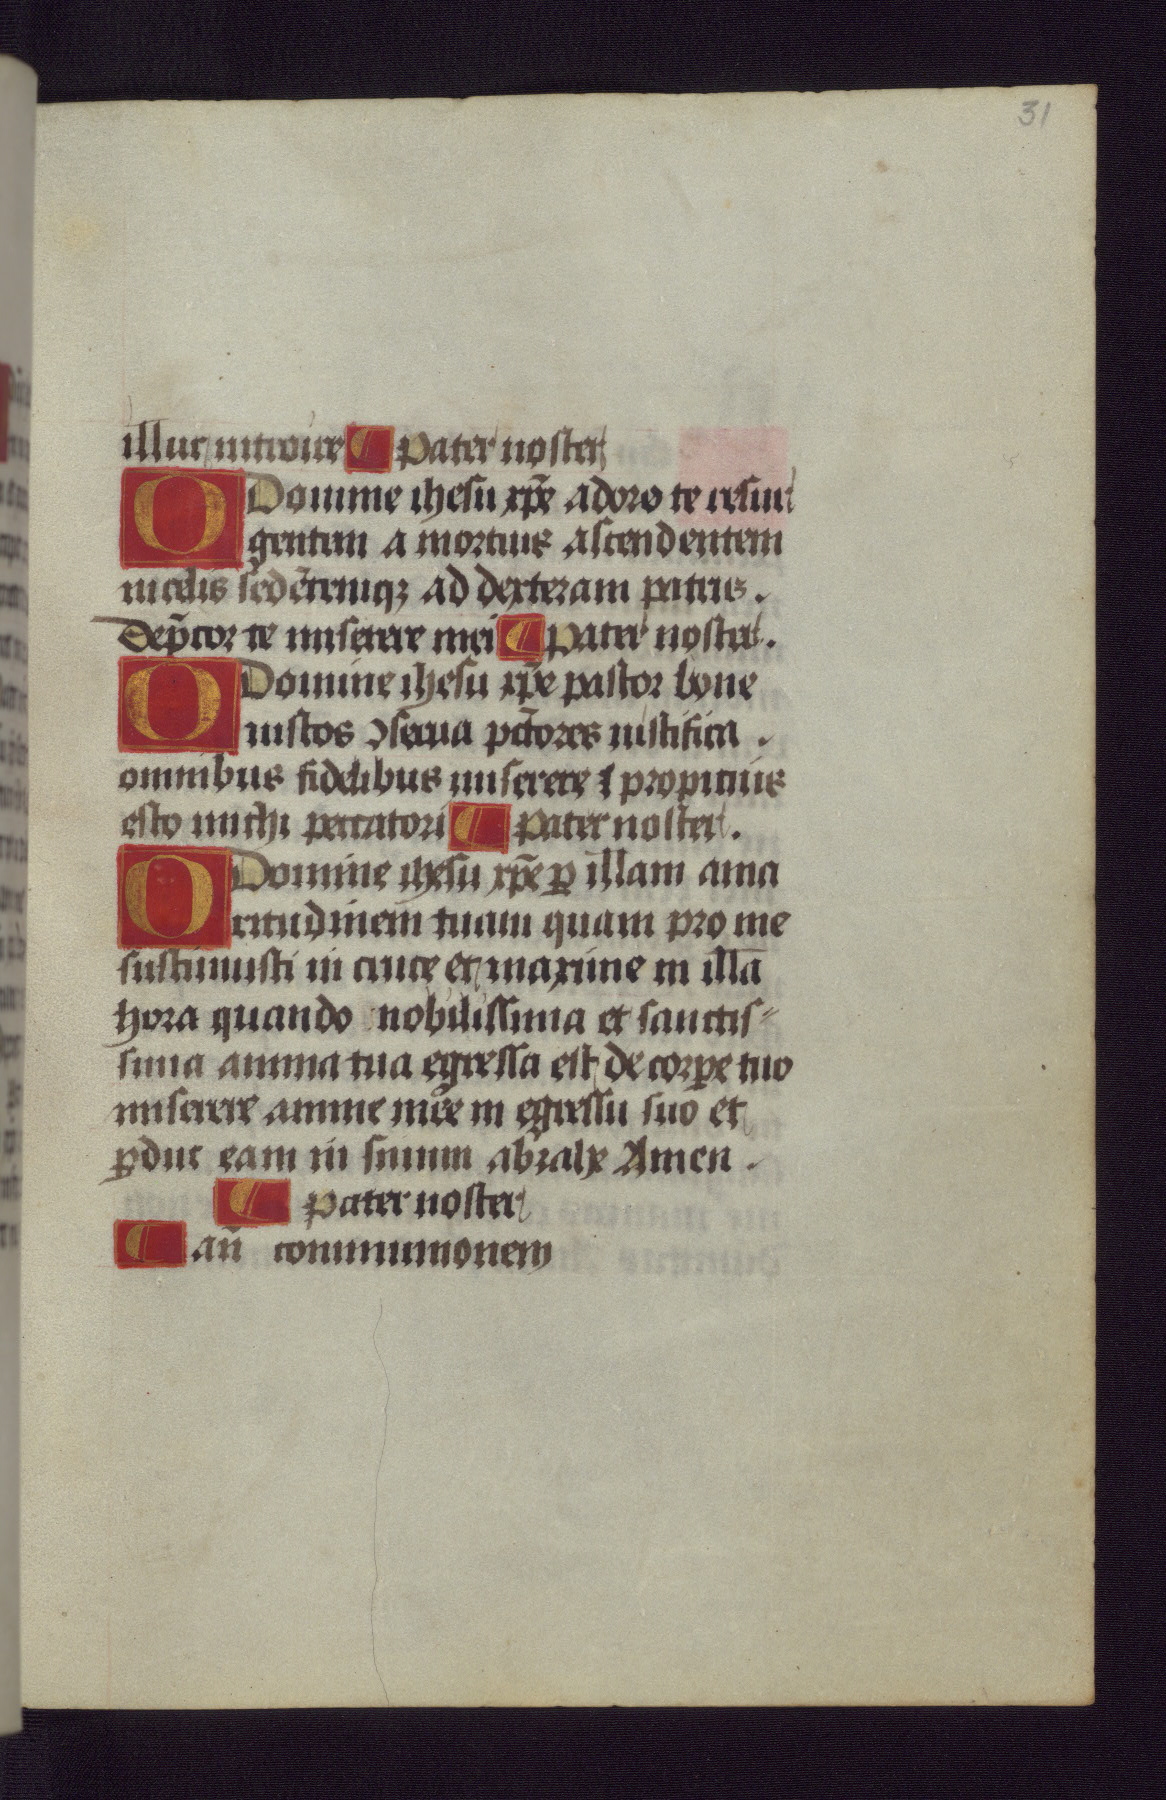 31
illuc introire ¶ Pater noster
O Domine ihesu xp̄e adoro te resur
gentem a mortuis ascendentem
in celis sedētemq̄ ad dexteram patris.
Dep̄cor te miserere mei ¶ Pater noster.
O Domine ihesu xp̄e pastor bone
iustos ꝯserua pctōres iustifica.
omnibus fidelibus miserere ⁊ propicius
esto michi peccatori ¶ Pater noster.
O Domine ihesu xp̄e ꝑ illam ama
ritudinem tuam quam pro me
sustinuisti in cruce et maxime in illā
hora quando nobilissima et sanctis-
sima anima tua egressa est de corꝑe tuo
miserere anime mee in egressu suo et
ꝑduc eam in sinum abrahe Amen.
¶ Pater noster
¶ an̄ communionem